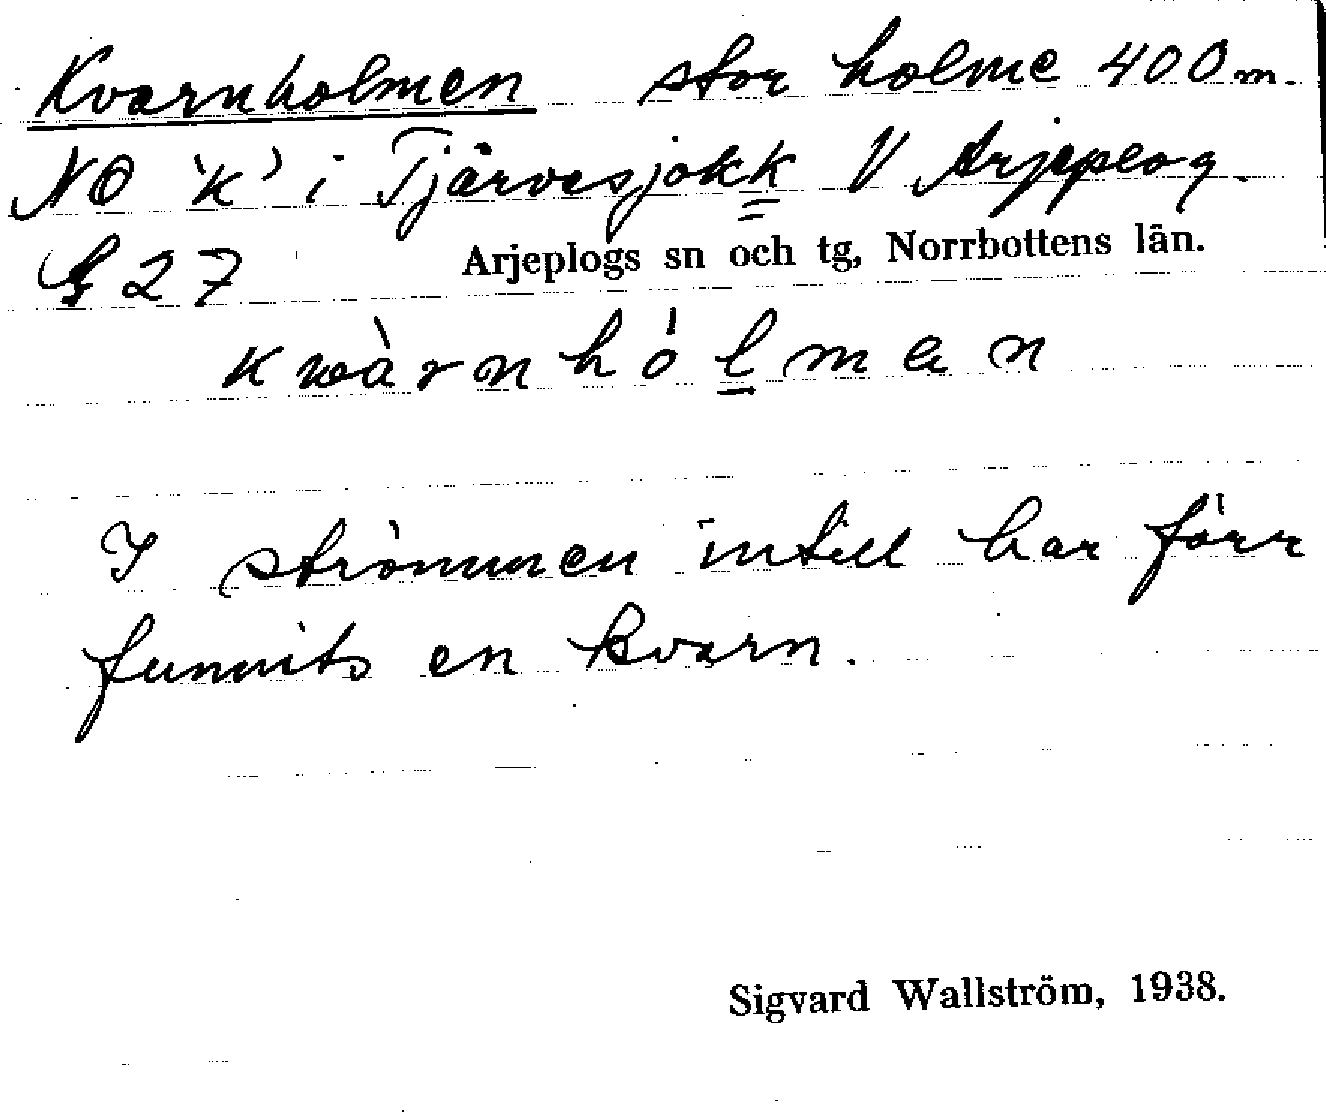 Kvarnholmen stor holme 400 m.
NO 'k' i Tjärvesjokk V Arjeplog.
G 27 Arjeplogs sn och tg, Norrbottens län.
kwàrnhólmen
I strömmen intill har förr
funnits en kvarn.
Sigvard Wallström, 1938.